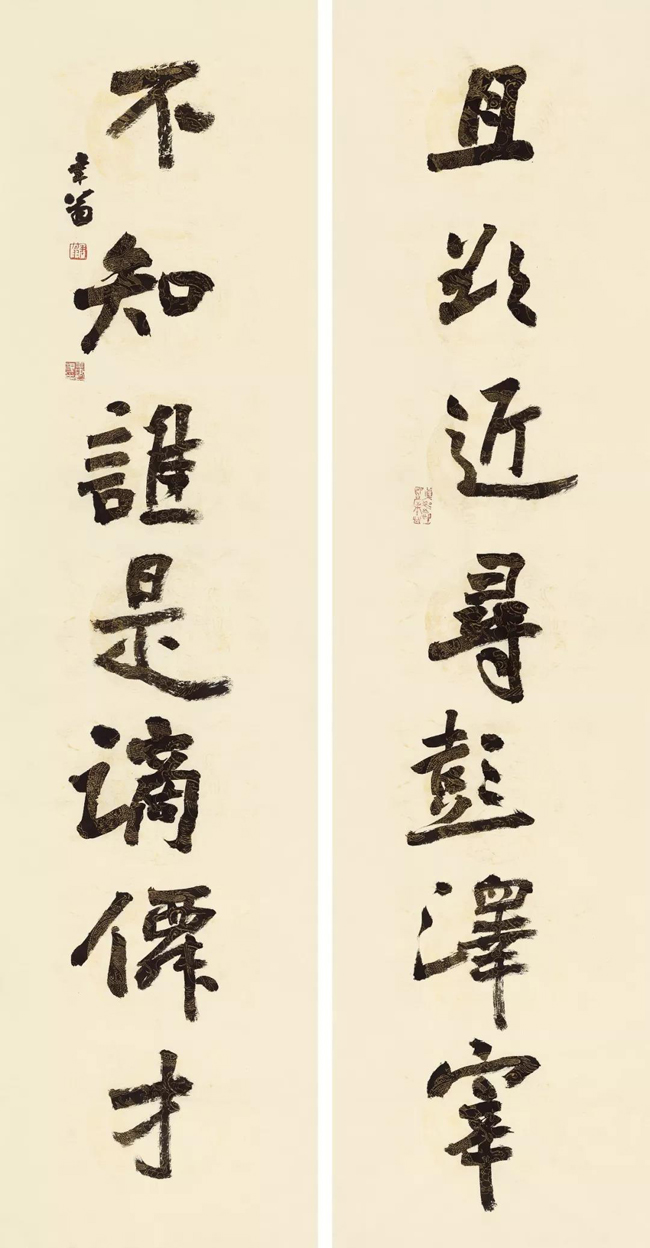 且欲近尋彭澤宰
不知誰是謫僊才